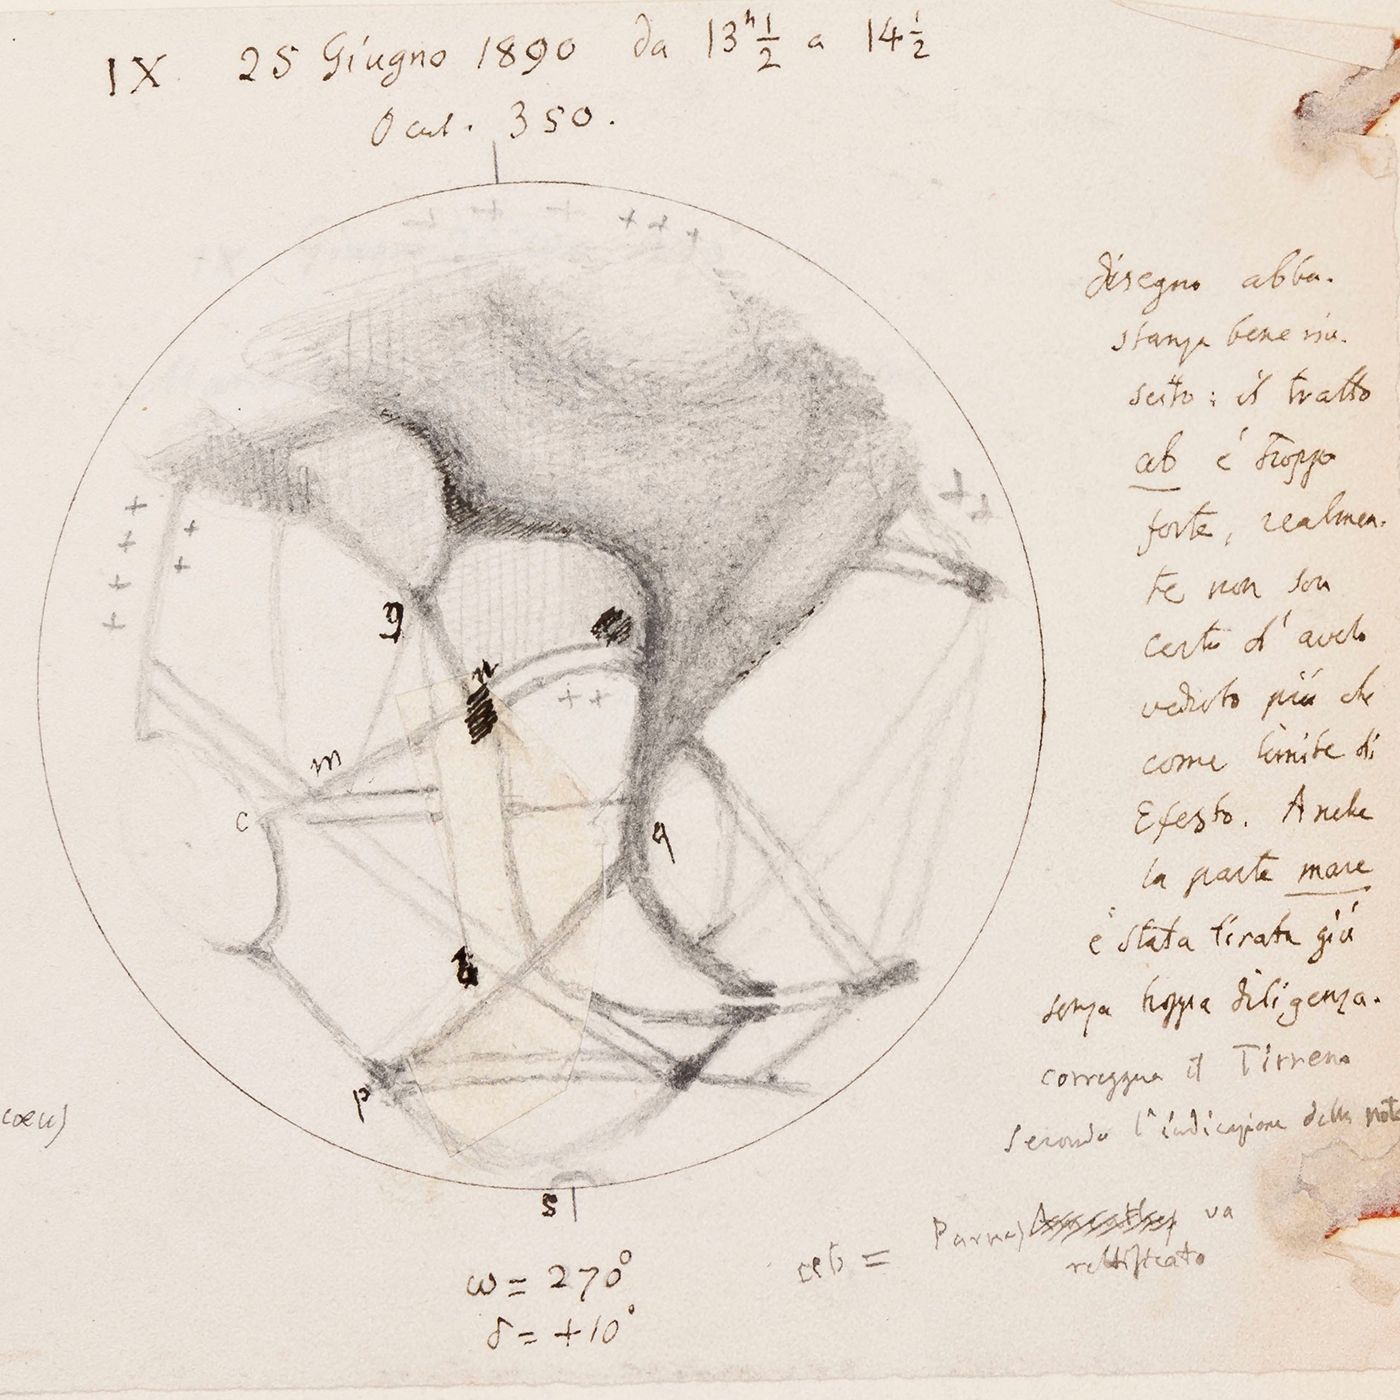 IX 25 Giugno 1890 da 13ʰ½ a 14½
Ocul. 350.
disegno abba-
stanza bene riu-
scito: il tratto
ab è troppo
forte, realmen-
te non son
certo d'averlo
veduto più che
come limite di
Efesto. Anche
la parte mare
è stata tirata giù
senza troppa diligenza.
correggere il Tirreno
secondo l'indicazione della nota
g
n
m
c
q
b
p
s
ω = 270°
δ = +10°
ab =
va
rettificato